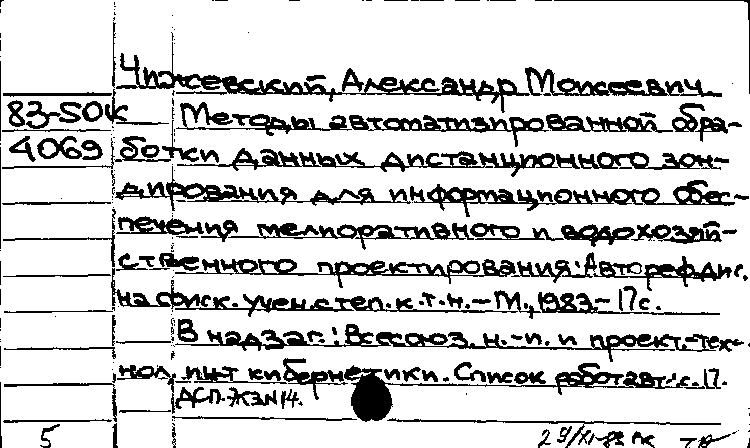 Чижевский, Александр Моисеевич.
83-50к Методы автоматизированной обра-
4069 ботки данных дистанционного зон-
дирования для информационного обес-
печения мелиоративного и водохозяй-
ственного проектирования: Автореф. дис.
на соиск. учен. степ. к. т. н. - М., 1983. - 17 с.
В надзаг.: Всесоюз. н.-и. и проект.-тех-
нол. ин-т кибернетики. Список работ авт.: с. 17.
ДСП. ЖЗ N14.
5